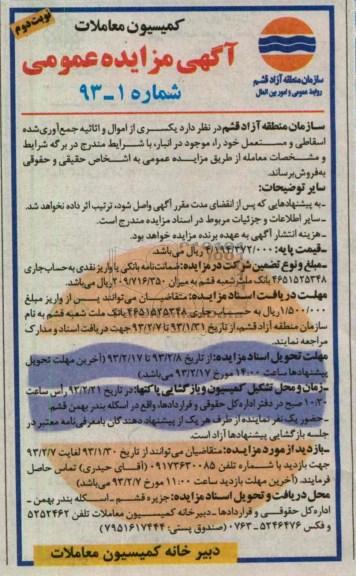 نوبت دوم
کمیسیون معاملات
آگهی مزایده عمومی
شماره ۱-۹۳
سازمان منطقه آزاد قشم
روابط عمومی و امور بین الملل
سازمان منطقه آزاد قشم در نظر دارد یکسری از اموال و اثاثیه جمع‌آوری‌شده
اسقاطی و مستعمل خود را، موجود در انبار، با شرایط مندرج در برگه شرایط
و مشخصات معامله از طریق مزایده عمومی به اشخاص حقیقی و حقوقی
به‌فروش برساند.
سایر توضیحات:
-به پیشنهادهایی که پس از انقضای مدت مقرر آگهی واصل شود، ترتیب اثر داده نخواهد شد.
-سایر اطلاعات و جزئیات مربوط در اسناد مزایده مندرج است.
-هزینه انتشار آگهی به عهده برنده مزایده خواهد بود.
-قیمت پایه: ریال می‌باشد
-مبلغ و نوع تضمین شرکت در مزایده: ضمانت‌نامه بانکی یا واریز نقدی به حساب جاری
۴۶۵۱۵۲۵۳۴۸ بانک ملت شعبه قشم به میزان ۲۰۹/۷۱۶/۳۵۰ ریال می‌باشد
مهلت دریافت اسناد مزایده: متقاضیان می‌توانند پس از واریز مبلغ
۱/۵۰۰/۰۰۰ ریال به حساب جاری ۴۶۵۱۵۲۵۳۴۸ بانک ملت شعبه قشم به نام
سازمان منطقه آزاد قشم، از تاریخ ۹۳/۱/۳۱ تا ۹۳/۲/۷ جهت دریافت اسناد و مدارک
مراجعه نمایند.
مهلت تحویل اسناد مزایده: از تاریخ ۹۳/۲/۸ تا ۹۳/۲/۱۷ (آخرین مهلت تحویل
پیشنهادها ساعت ۱۴:۰۰ مورخ ۹۳/۲/۱۷ می‌باشد.)
-زمان و محل تشکیل کمیسیون و بازگشایی پاکتها: در تاریخ ۹۳/۲/۲۱ رأس ساعت
۱۰:۳۰ صبح در دفتر اداره کل حقوقی و قراردادها، واقع در اسکله بندر بهمن قشم.
-حضور یک نفر نماینده از طرف هر یک از پیشنهاد دهندگان با معرفی‌نامه معتبر در
جلسه بازگشایی پیشنهادها آزاد است.
-بازدید از مورد مزایده: متقاضیان می‌توانند از تاریخ ۹۳/۱/۳۰ لغایت ۹۳/۲/۷
جهت بازدید با شماره تلفن ۰۹۱۷۳۶۳۰۰۸۵ (آقای حیدری) تماس حاصل
فرمایند. (آخرین مهلت بازدید ساعت ۱۱:۰۰ مورخ ۹۳/۲/۷ می‌باشد)
محل دریافت و تحویل اسناد مزایده: جزیره قشم - اسکله بندر بهمن -
اداره کل حقوقی و قراردادها - دبیرخانه کمیسیون معاملات تلفن ۵۲۵۲۴۶۲
و فکس ۵۲۴۶۴۷۶ -۰۷۶۳ (صندوق پستی: ۷۹۵۱۶۱۷۴۴۴)
دبیر خانه کمیسیون معاملات